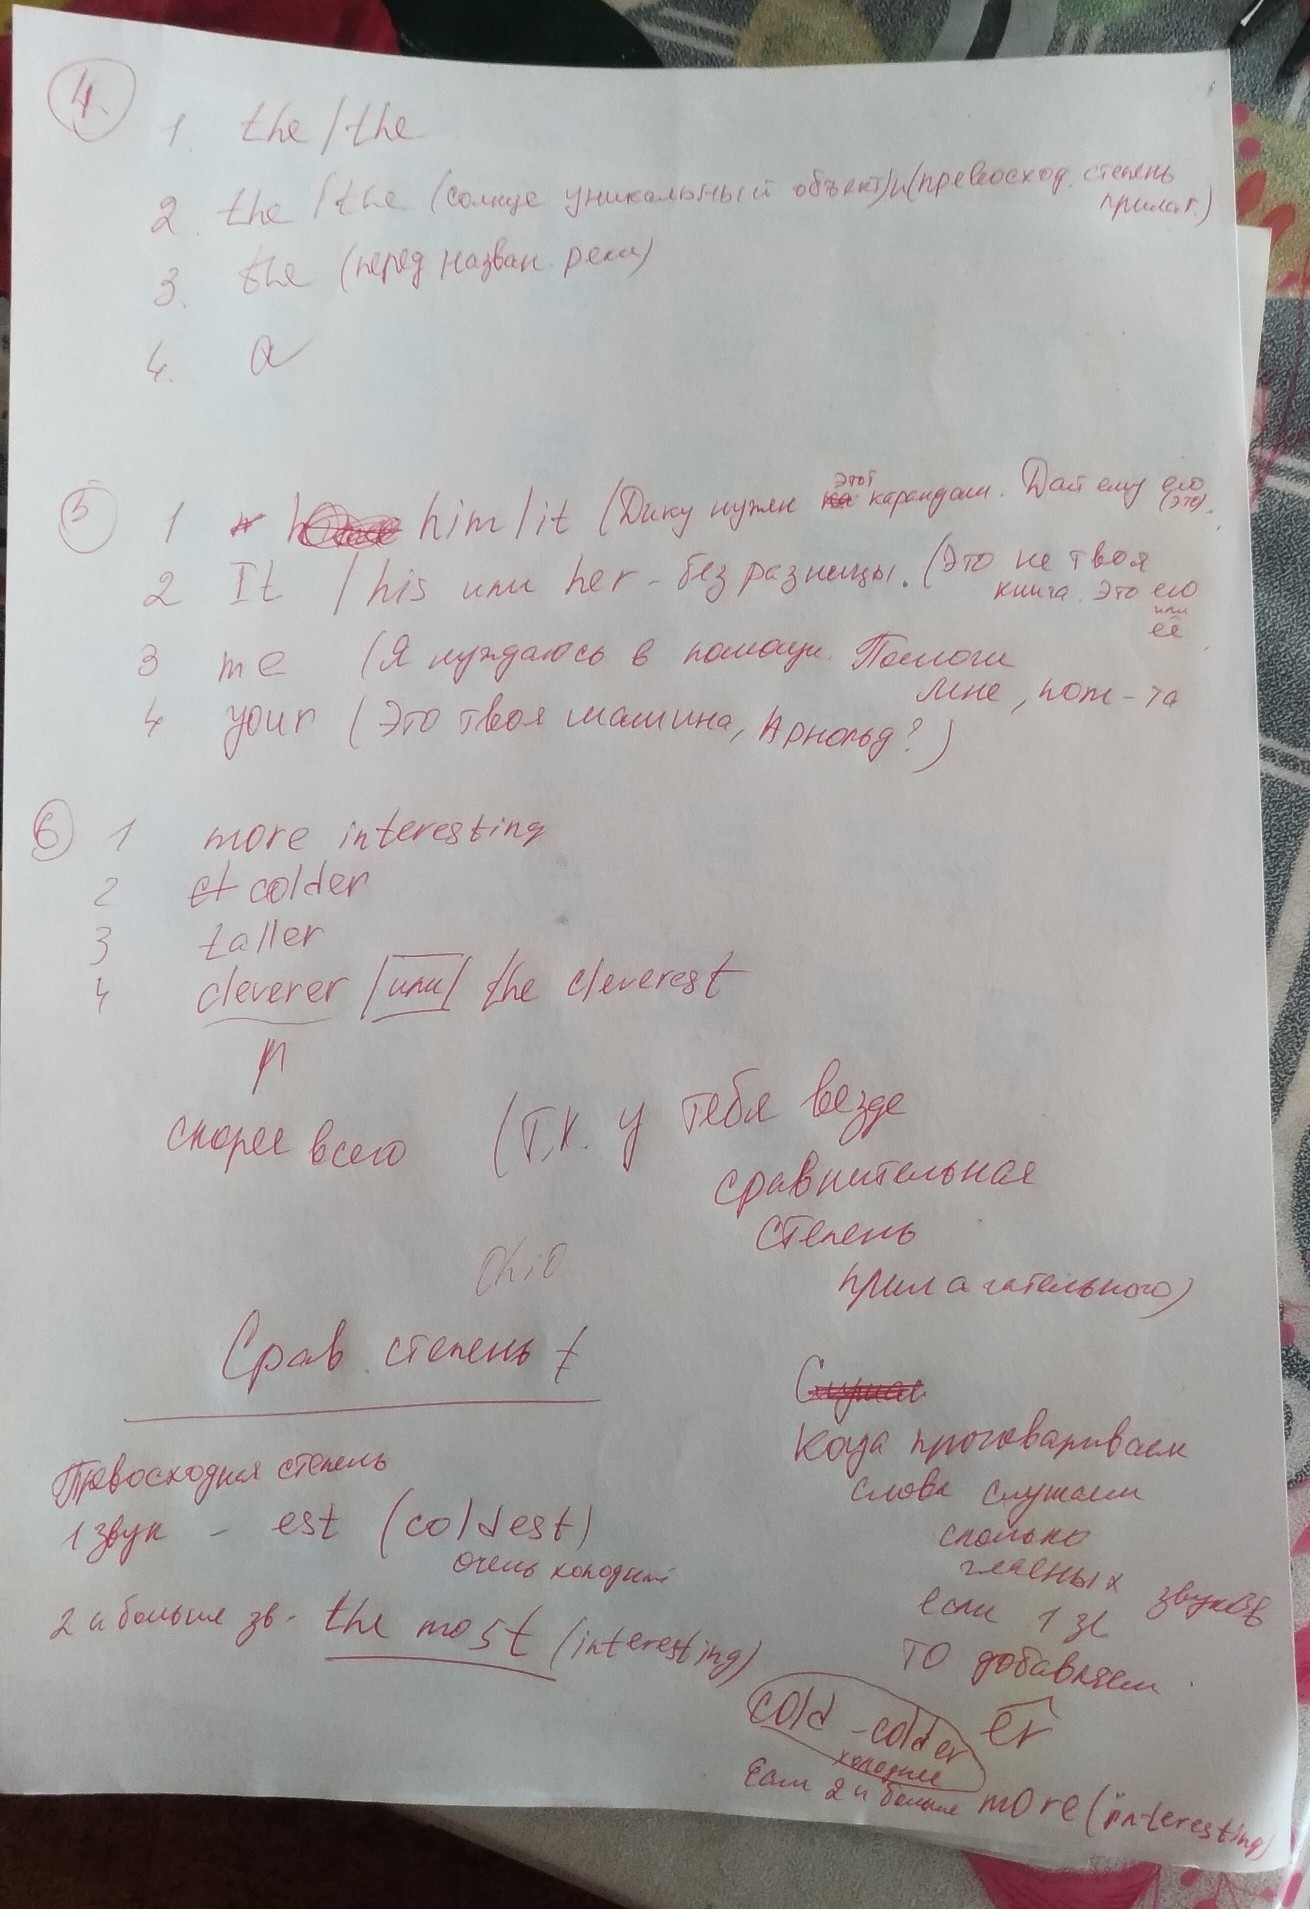 4.
1. the / the
2. the / the (солнце уникальный объект) и (превосход. степень
прилаг.)
3. the (перед назван. реки)
4. a
5
1 him / it (Дику нужен этот карандаш. Дай ему его
(это).
2 It / his или her - без разницы. (Это не твоя
книга. Это его
или
её
3 me (Я нуждаюсь в помощи. Помоги
мне, пож-та
4 your (Это твоя машина, Арнольд?)
6
1 more interesting
2 colder
3 taller
4 cleverer / или / the cleverest
скорее всего (т.к. у тебя везде
сравнительная
степень
прилагательного)
Ohio
Срав. степень
Превосходная степень
1 звук - est (coldest)
очень холодный
2 и больше зв. the most (interesting)
Когда проговариваем
слова слушаем
сколько
гласных звуков
если 1 зв
то добавляем
er
cold - colder
холоднее
Если 2 и больше more (interesting)